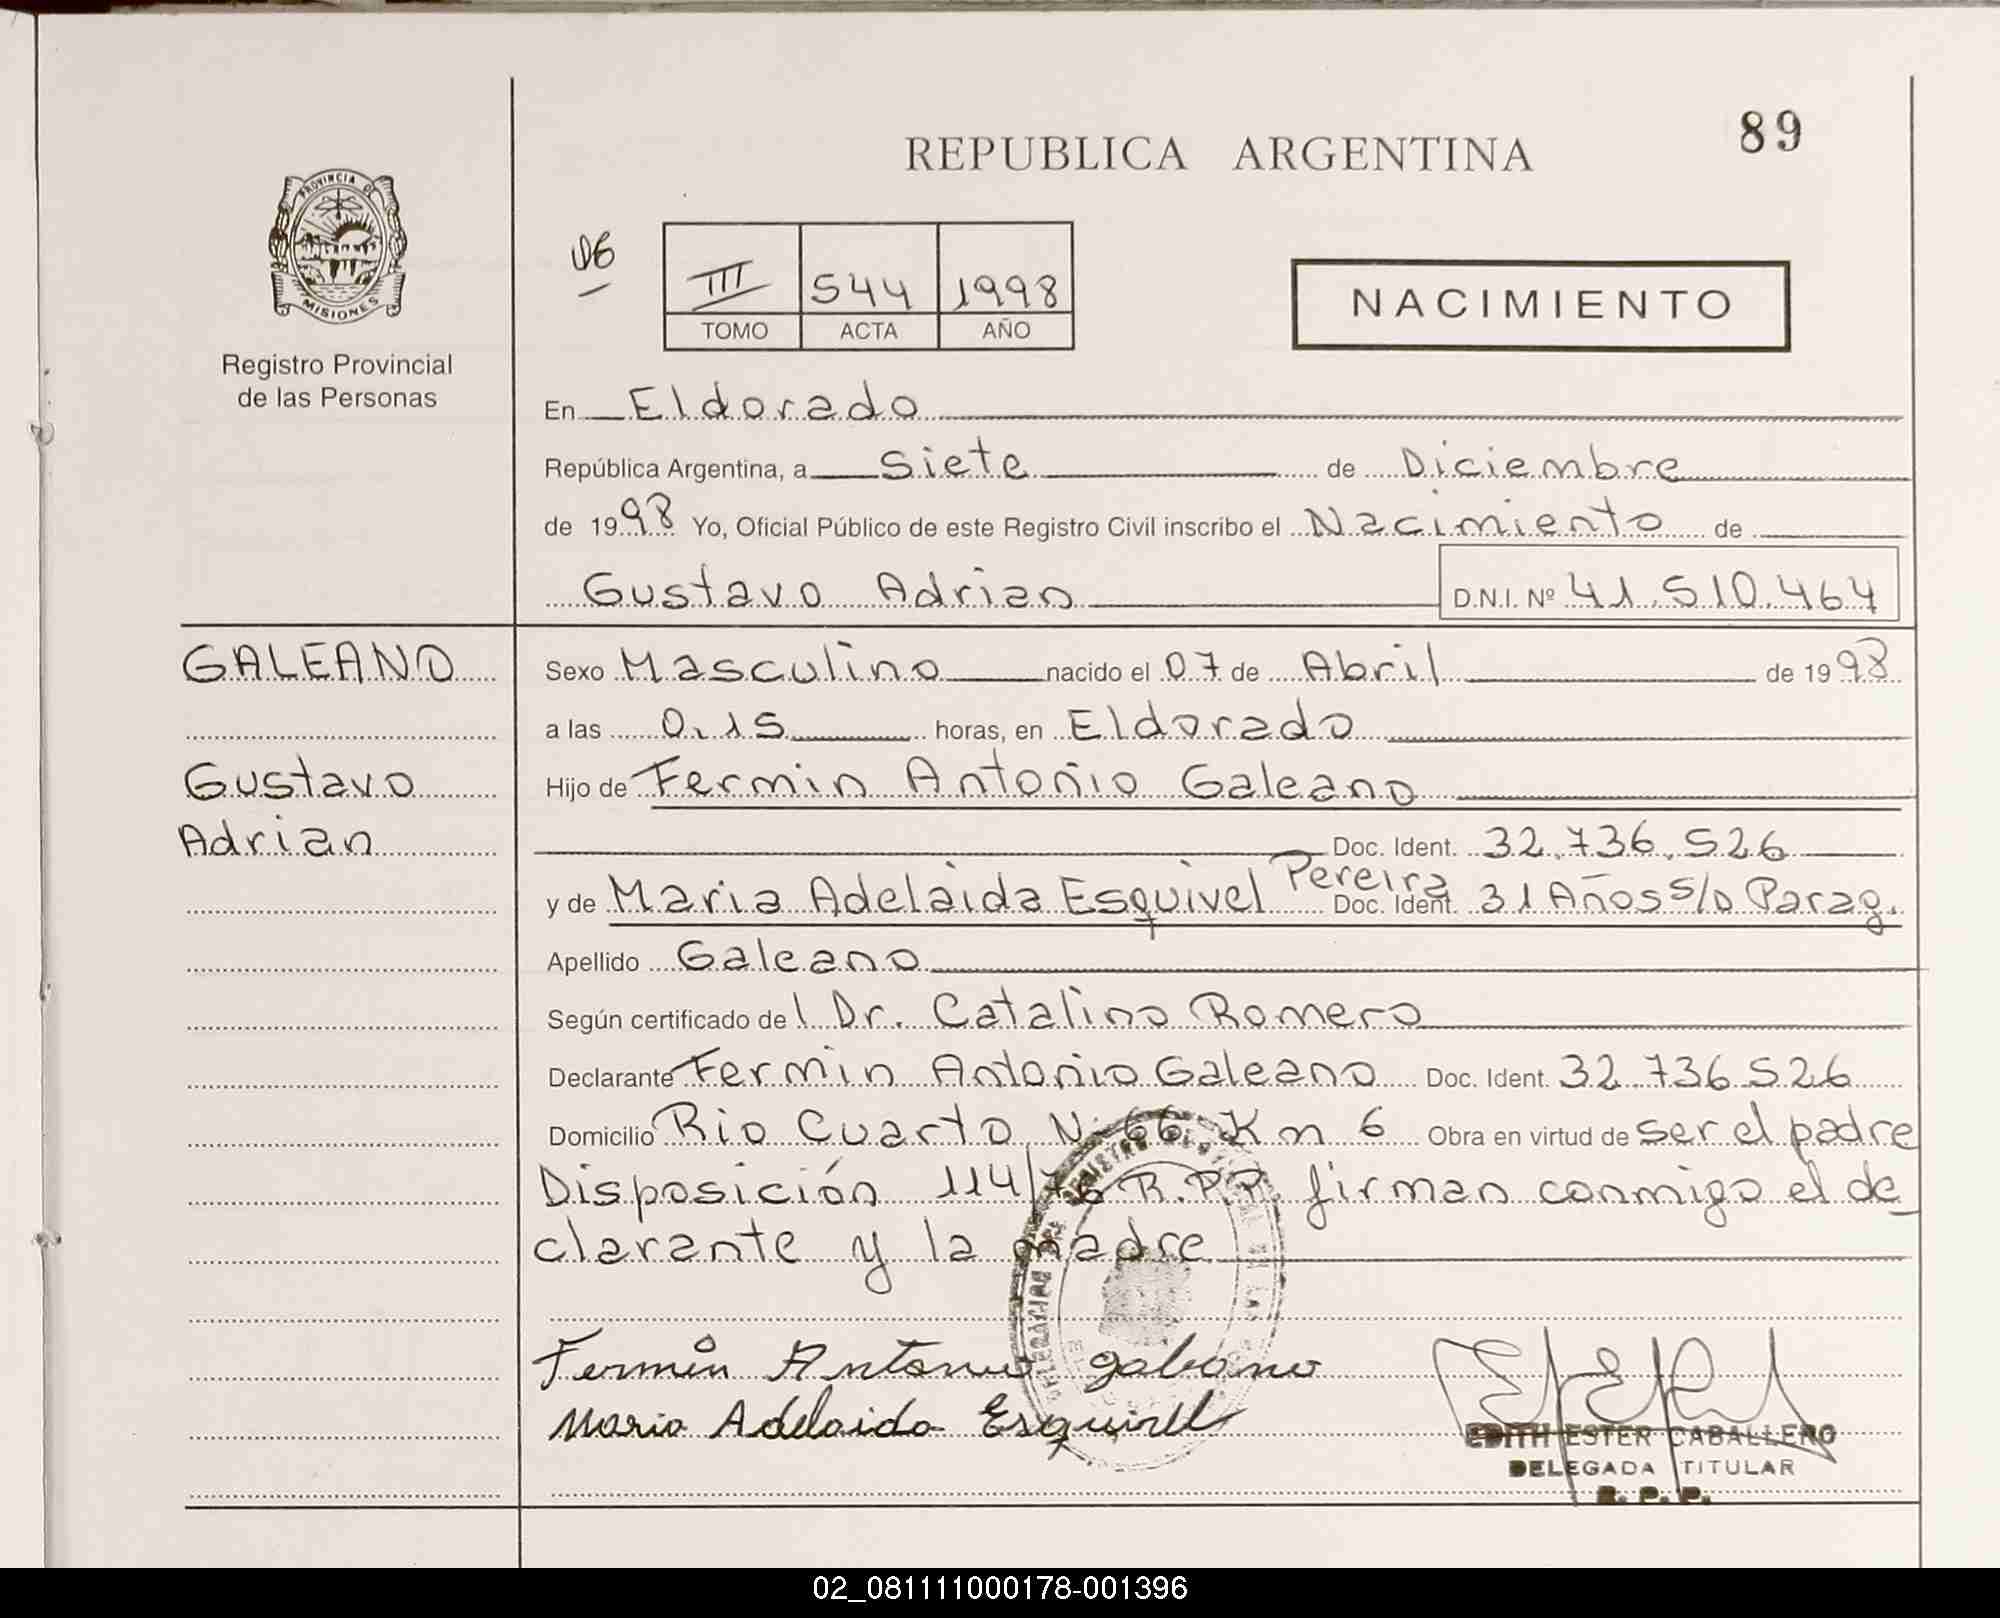 89
REPUBLICA ARGENTINA
PROVINCIA DE
MISIONES
Registro Provincial
de las Personas
III 544 1998
TOMO ACTA AÑO
NACIMIENTO
En Eldorado
República Argentina, a Siete de Diciembre
de 1998 Yo, Oficial Público de este Registro Civil inscribo el Nacimiento de
Gustavo Adrian D.N.I. Nº 41.510.464
GALEANO Sexo Masculino nacido el 07 de Abril de 1998
a las 0.15 horas, en Eldorado
Gustavo Hijo de Fermin Antonio Galeano
Adrian Doc. Ident. 32.736.526
y de Maria Adelaida Esquivel Pereira Doc. Ident. 31 Años s/o Parag.
Apellido Galeano
Según certificado del Dr. Catalino Romero
Declarante Fermin Antonio Galeano Doc. Ident. 32 736 526
Domicilio Rio Cuarto N- 66 Km 6 Obra en virtud de ser el padre
Disposición 114/76 R.P.P. firman conmigo el de
clarante y la madre
Fermin Antonio galeano
Maria Adelaida Esquivel
EDITH ESTER CABALLERO
DELEGADA TITULAR
R. P. P.
02_081111000178-001396